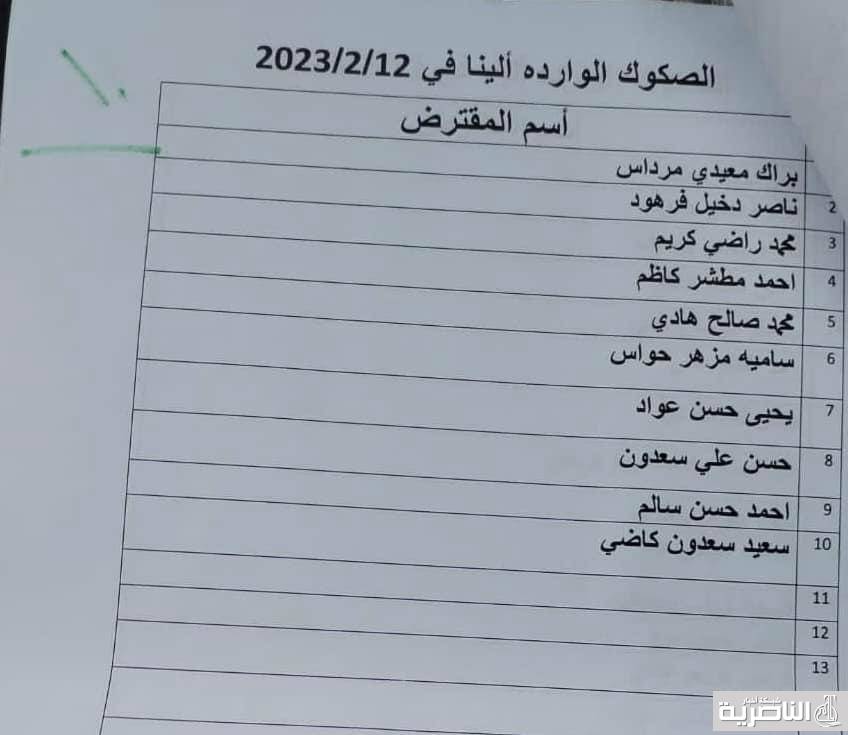 الصكوك الوارده ألينا في 2023/2/12
أسم المقترض
براك معيدي مرداس
2 ناصر دخيل فرهود
3 محمد راضي كريم
4 احمد مطشر كاظم
5 محمد صالح هادي
6 ساميه مزهر حواس
7 يحيى حسن عواد
8 حسن علي سعدون
9 احمد حسن سالم
10 سعيد سعدون كاضي
11
12
13
شبكة أخبار
الناصرية